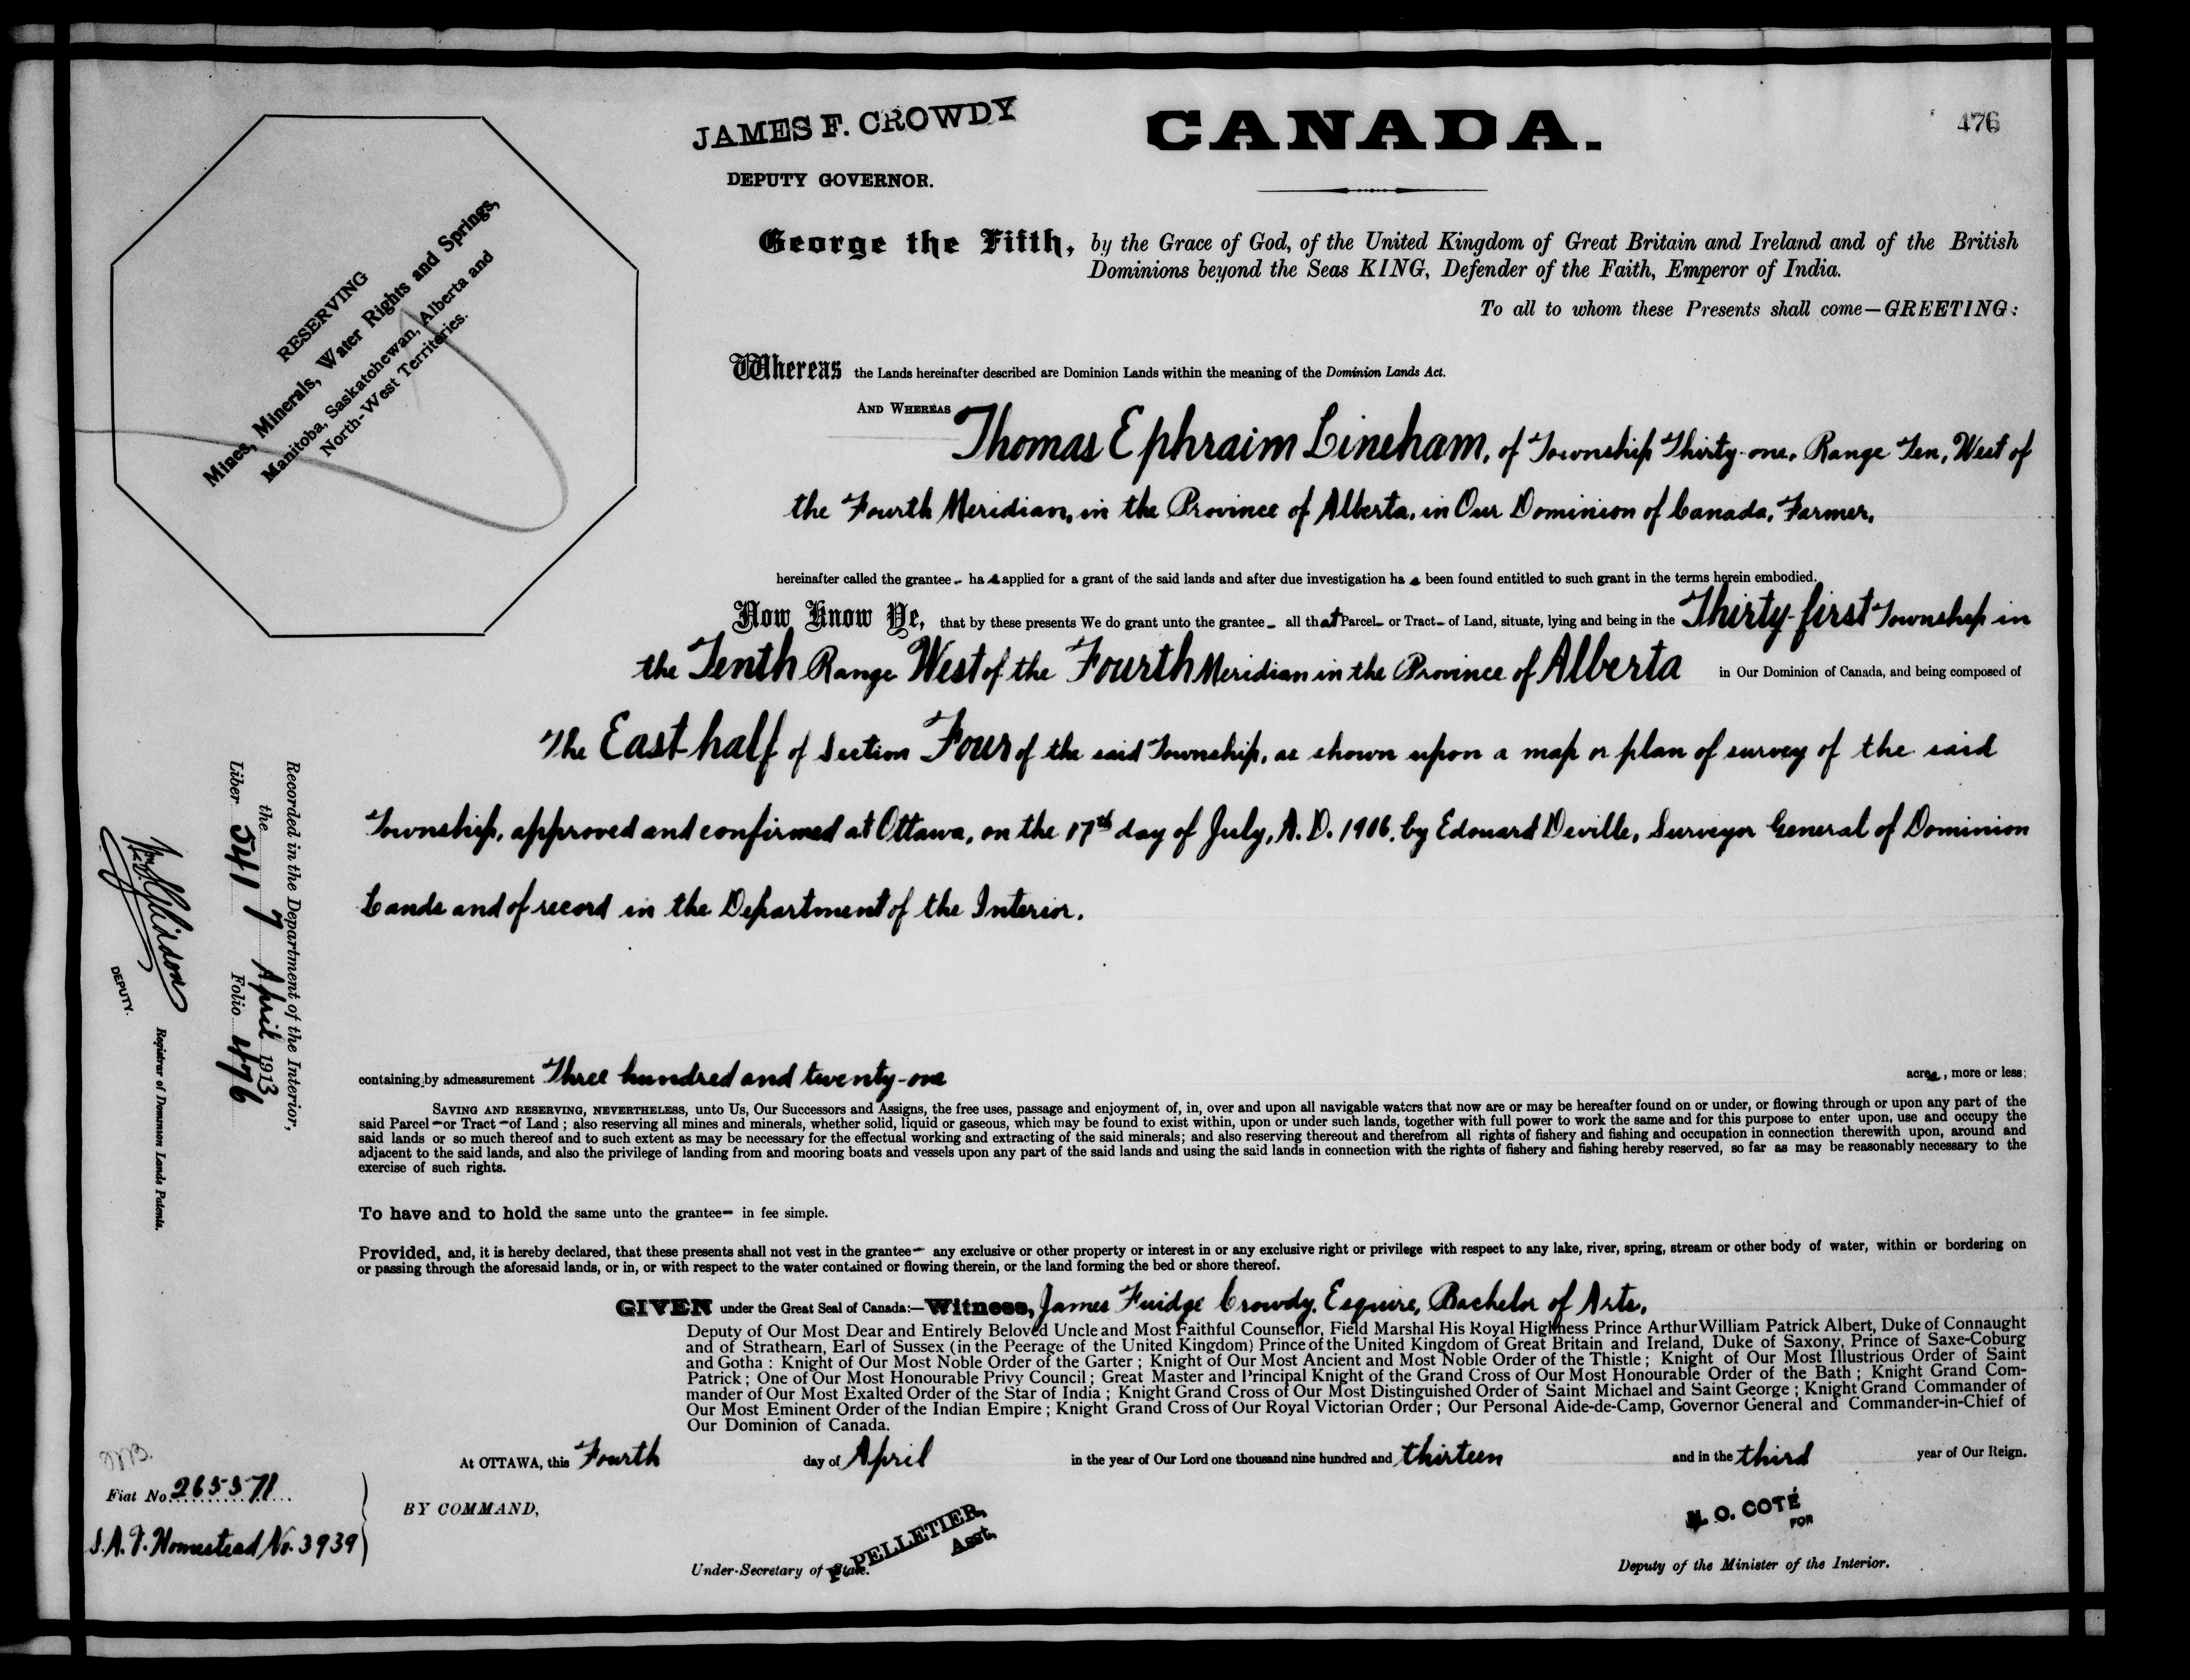 JAMES F. CROWDY
DEPUTY GOVERNOR.
CANADA.
476
RESERVING
Mines, Minerals, Water Rights and Springs,
Manitoba, Saskatchewan, Alberta and
North-West Territories.
George the Fifth, by the Grace of God, of the United Kingdom of Great Britain and Ireland and of the British
Dominions beyond the Seas KING, Defender of the Faith, Emperor of India.
To all to whom these Presents shall come—GREETING:
Whereas the Lands hereinafter described are Dominion Lands within the meaning of the Dominion Lands Act.
AND WHEREAS
Thomas Ephraim Lineham, of Township Thirty-one, Range Ten, West of
the Fourth Meridian, in the Province of Alberta, in Our Dominion of Canada, Farmer,
hereinafter called the grantee - has applied for a grant of the said lands and after due investigation has been found entitled to such grant in the terms herein embodied.
Now Know Ye, that by these presents We do grant unto the grantee - all that Parcel - or Tract - of Land, situate, lying and being in the Thirty-first Township in
the Tenth Range West of the Fourth Meridian in the Province of Alberta in Our Dominion of Canada, and being composed of
The East half of Section Four of the said Township, as shown upon a map or plan of survey of the said
Township, approved and confirmed at Ottawa, on the 17th day of July, A.D. 1906, by Edouard Deville, Surveyor General of Dominion
Lands and of record in the Department of the Interior.
containing by admeasurement Three hundred and twenty-one acres, more or less;
SAVING AND RESERVING, NEVERTHELESS, unto Us, Our Successors and Assigns, the free uses, passage and enjoyment of, in, over and upon all navigable waters that now are or may be hereafter found on or under, or flowing through or upon any part of the
said Parcel - or Tract - of Land; also reserving all mines and minerals, whether solid, liquid or gaseous, which may be found to exist within, upon or under such lands, together with full power to work the same and for this purpose to enter upon, use and occupy the
said lands or so much thereof and to such extent as may be necessary for the effectual working and extracting of the said minerals; and also reserving thereout and therefrom all rights of fishery and fishing and occupation in connection therewith upon, around and
adjacent to the said lands, and also the privilege of landing from and mooring boats and vessels upon any part of the said lands and using the said lands in connection with the rights of fishery and fishing hereby reserved, so far as may be reasonably necessary to the
exercise of such rights.
To have and to hold the same unto the grantee - in fee simple.
Provided, and, it is hereby declared, that these presents shall not vest in the grantee - any exclusive or other property or interest in or any exclusive right or privilege with respect to any lake, river, spring, stream or other body of water, within or bordering on
or passing through the aforesaid lands, or in, or with respect to the water contained or flowing therein, or the land forming the bed or shore thereof.
GIVEN under the Great Seal of Canada:—Witness, James Fuidge Crowdy, Esquire, Bachelor of Arts,
Deputy of Our Most Dear and Entirely Beloved Uncle and Most Faithful Counsellor, Field Marshal His Royal Highness Prince Arthur William Patrick Albert, Duke of Connaught
and of Strathearn, Earl of Sussex (in the Peerage of the United Kingdom) Prince of the United Kingdom of Great Britain and Ireland, Duke of Saxony, Prince of Saxe-Coburg
and Gotha: Knight of Our Most Noble Order of the Garter; Knight of Our Most Ancient and Most Noble Order of the Thistle; Knight of Our Most Illustrious Order of Saint
Patrick; One of Our Most Honourable Privy Council; Great Master and Principal Knight of the Grand Cross of Our Most Honourable Order of the Bath; Knight Grand Com-
mander of Our Most Exalted Order of the Star of India; Knight Grand Cross of Our Most Distinguished Order of Saint Michael and Saint George; Knight Grand Commander of
Our Most Eminent Order of the Indian Empire; Knight Grand Cross of Our Royal Victorian Order; Our Personal Aide-de-Camp, Governor General and Commander-in-Chief of
Our Dominion of Canada.
At OTTAWA, this Fourth day of April in the year of Our Lord one thousand nine hundred and thirteen and in the third year of Our Reign.
Fiat No. 265571
S.A.G. Homestead No. 3939
BY COMMAND,
PELLETIER,
Asst.
Under-Secretary of State.
N. O. COTÉ
FOR
Deputy of the Minister of the Interior.
Recorded in the Department of the Interior,
the 7 April 1913
Liber 541 Folio 476
Registrar of Dominion Lands Patents.
DEPUTY.